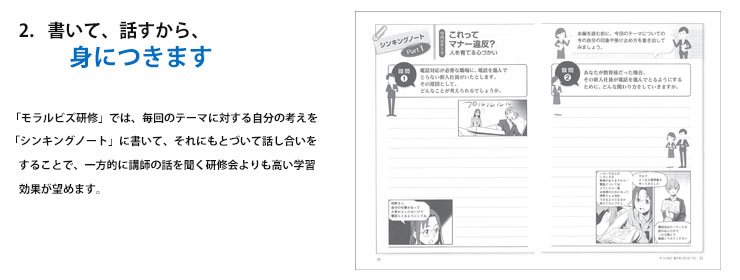 2. 書いて、話すから、
身につきます
「モラルビズ研修」では、毎回のテーマに対する自分の考えを
「シンキングノート」に書いて、それにもとづいて話し合いを
することで、一方的に講師の話を聞く研修会よりも高い学習
効果が望めます。
シンキングノート
Part 1
これって
マナー違反?
人を育てる心づかい
設問
1
電話対応が必要な職場に、電話を進んで
とらない新入社員がいたとします。
その原因として、
どんなことが考えられるでしょうか。
プルルルルル
本編を読む前に、今回のテーマについての
今の自分の印象や受け止め方を書き出して
みましょう。
設問
2
あなたが教育係だった場合、
その新入社員が電話を進んでとるようにする
ために、どんな関わり方をしていきますか。